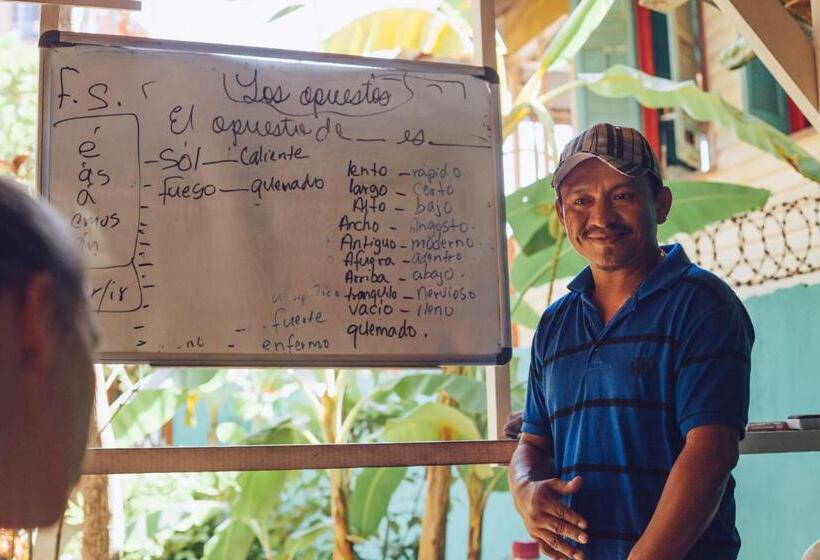 F.S.
Los opuestos
El opuesto de __ es __
é
ás
a
emos
án
r/ir
Sol — caliente
fuego — quemado
lento — rapido
largo — corto
Alto — bajo
Ancho — Angosto.
Antiguo — moderno.
Afuera — adentro
Arriba — abajo.
tranquilo — nervioso
vacio — lleno
quemado.
fuerte
enfermo